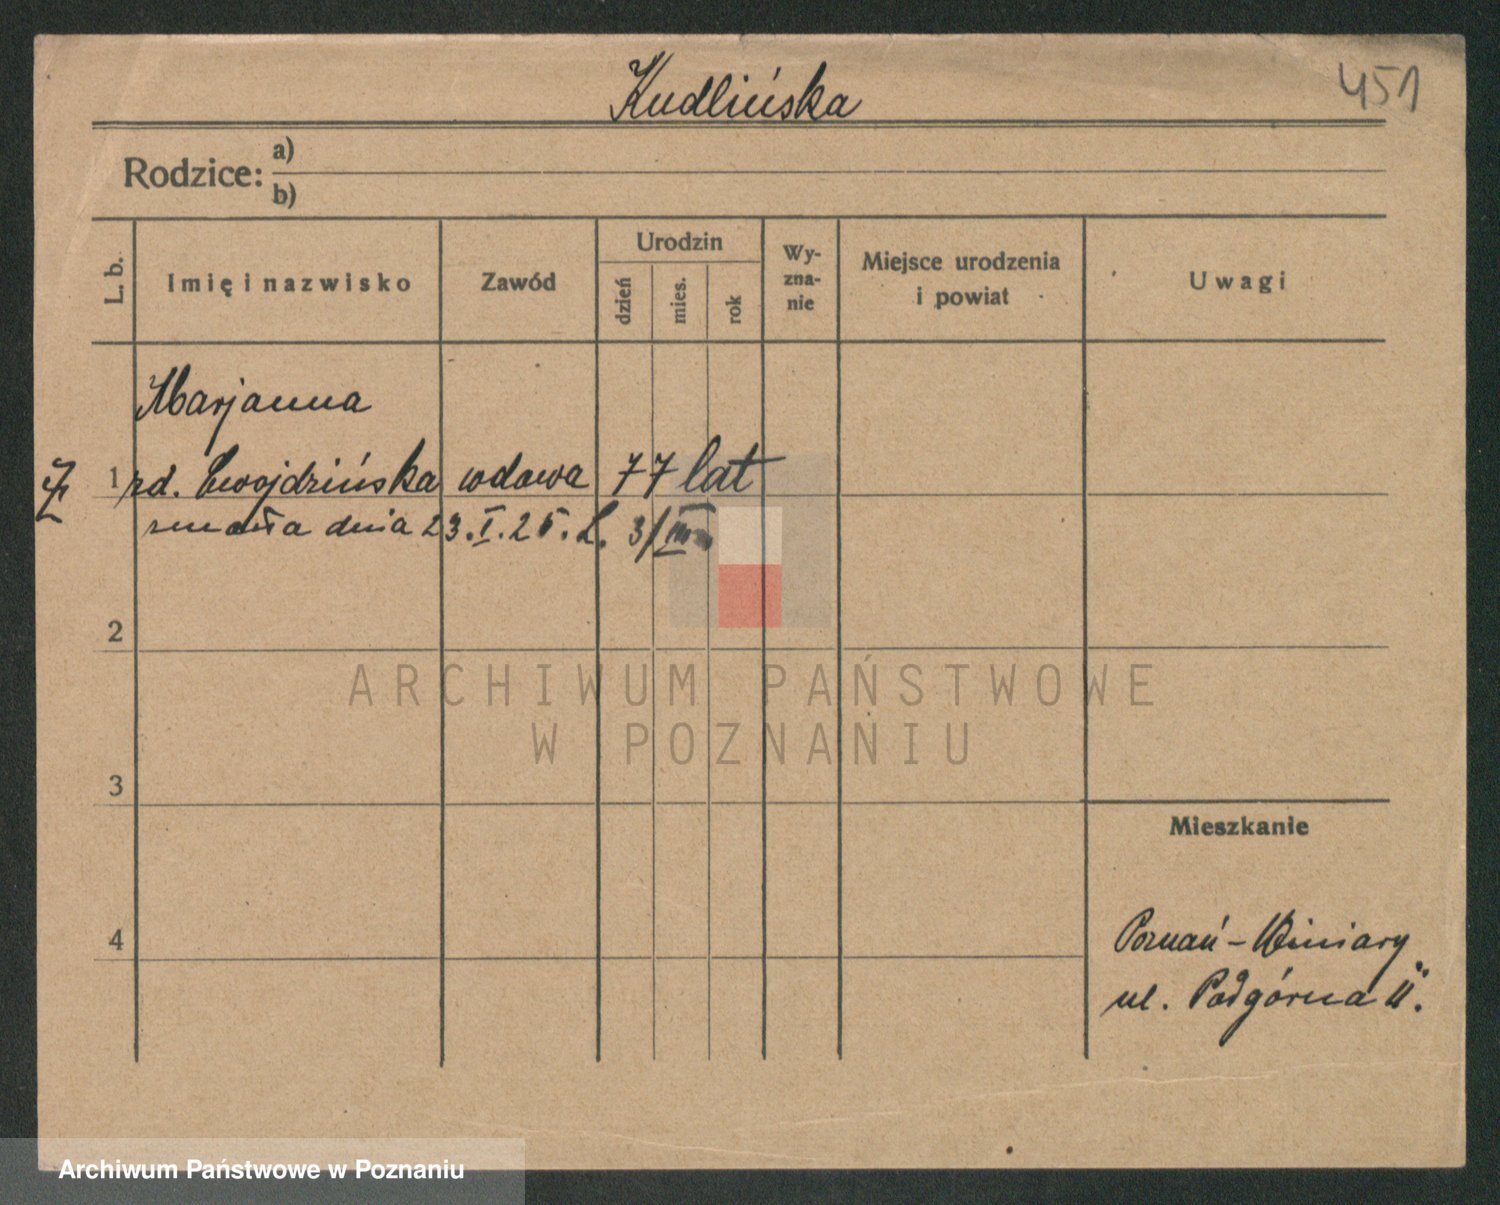 Kudlińska
451
Rodzice: a)
b)
L. b.
Imię i nazwisko
Zawód
Urodzin
dzień
mies.
rok
Wy-
zna-
nie
Miejsce urodzenia
i powiat
Uwagi
Marjanna
1 zd. Ewojdzińska wdowa 77 lat
zmarła dnia 23.I.25. L. 3/
2
3
4
Mieszkanie
Poznań-Winiary
ul. Podgórna 11.
ARCHIWUM PAŃSTWOWE
W POZNANIU
Archiwum Państwowe w Poznaniu